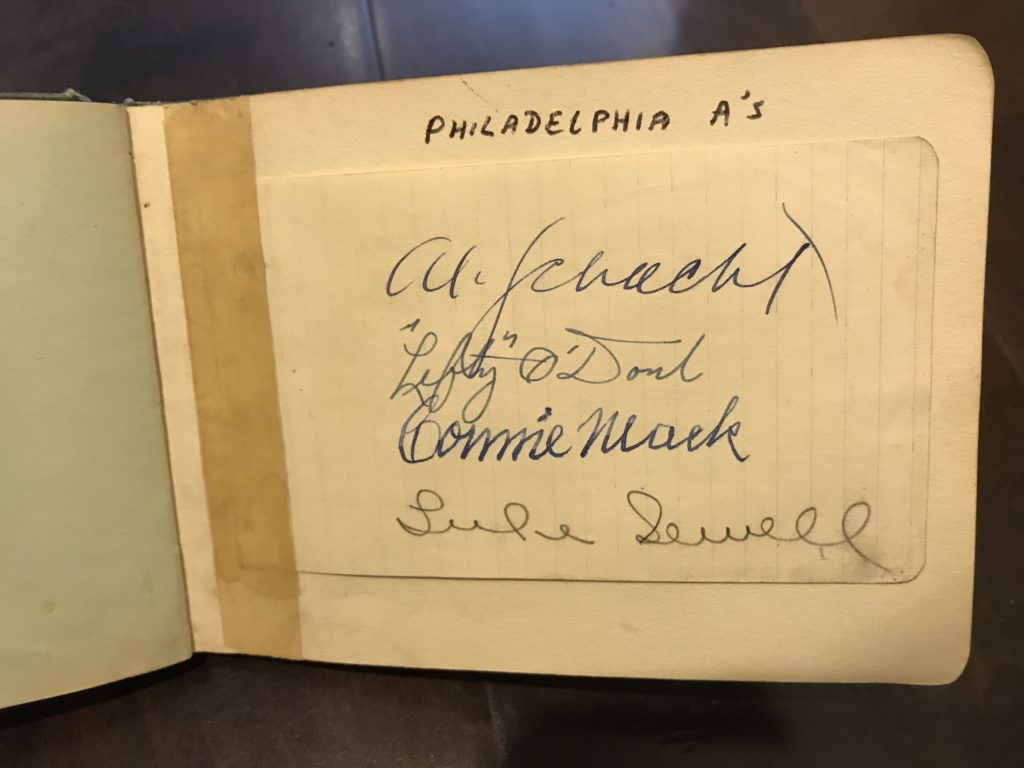 PHILADELPHIA A's
Al. Schacht
"Lefty" O'Doul
Connie Mack
Luke Sewell